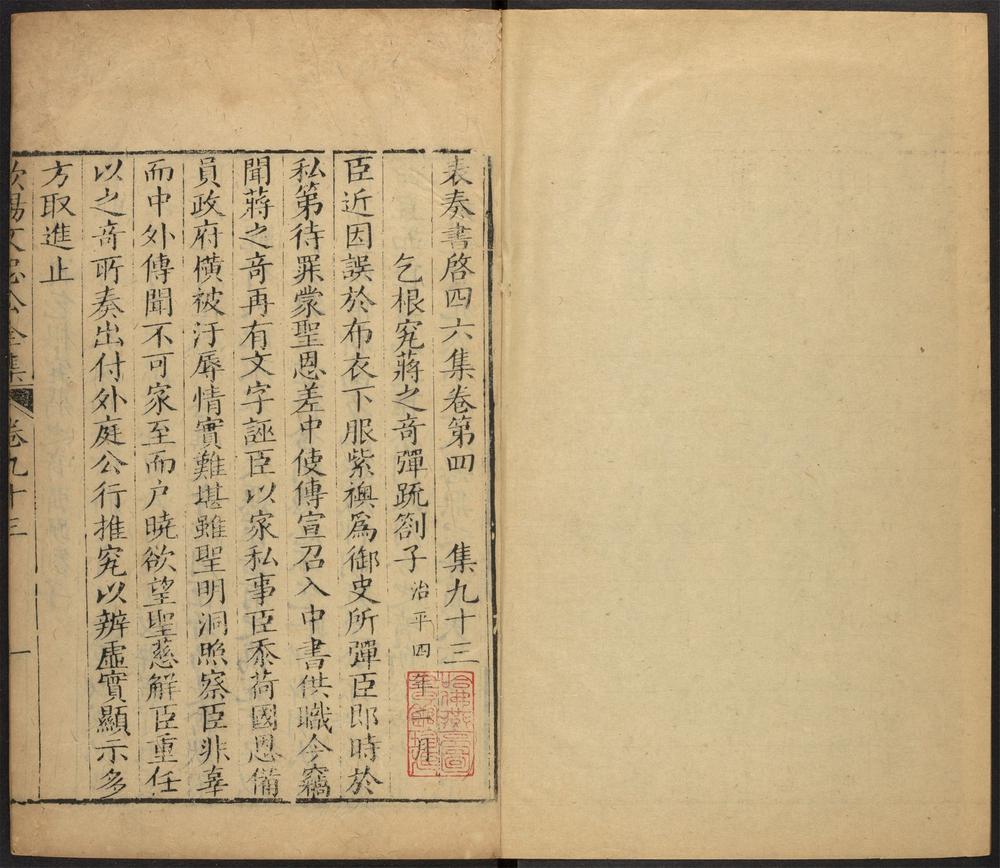 表奏書啓四六集卷第四 集九十三
乞根究蔣之竒彈䟽劄子 治平四年 月
臣近因誤於布衣下服紫襖爲御史所彈臣即時於
私第待罪蒙聖恩差中使傳宣召入中書供職今竊
聞蔣之竒再有文字誣臣以家私事臣忝荷國恩備
員政府横被汙辱情實難堪雖聖明洞照察臣非辜
而中外傳聞不可家至而户曉欲望聖慈解臣重任
以之竒所奏出付外庭公行推究以辨虚實顯示多
方取進止
歐陽文忠公全集 卷九十三 一